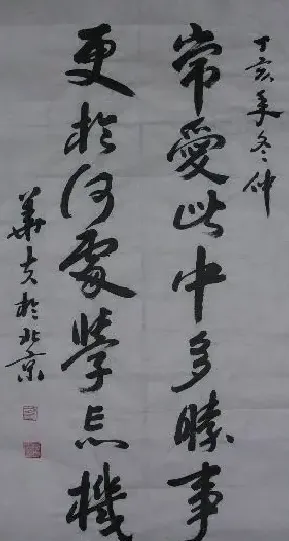 丁亥年冬仲
常愛此中多勝事
更於何處學忘機
華夫於北京